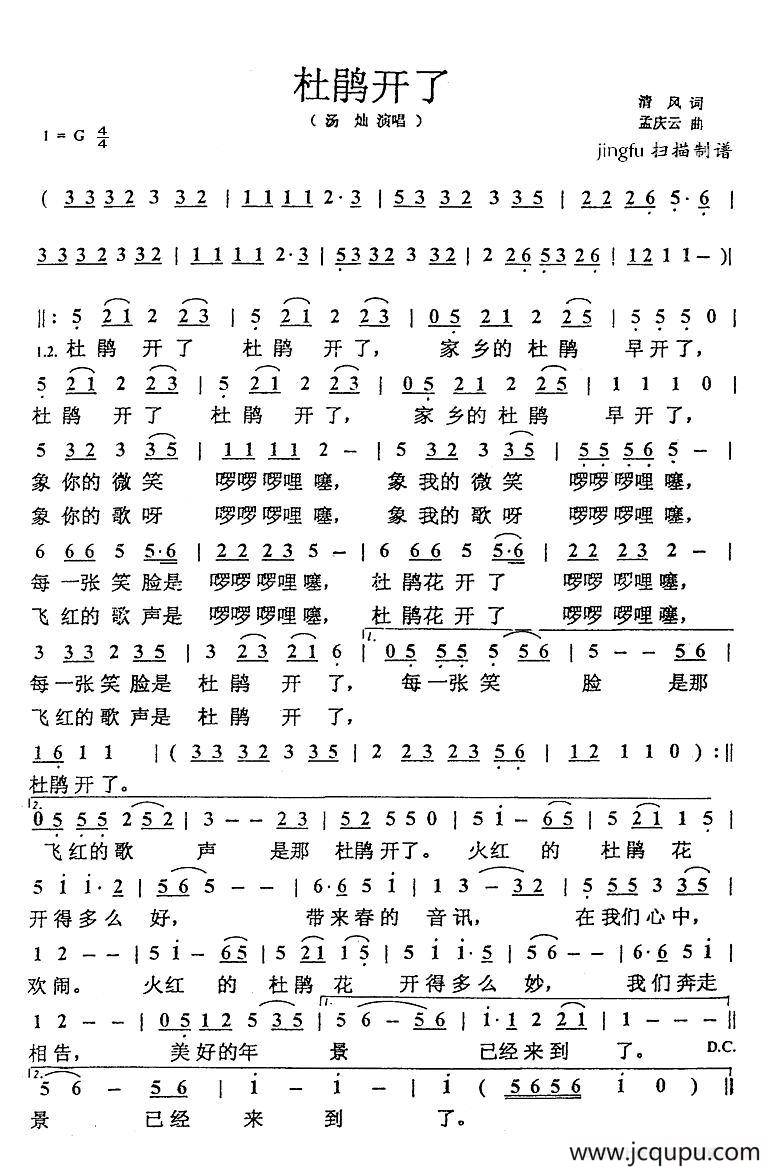 杜鹃开了
（汤 灿 演唱）
清 风 词
孟庆云 曲
1 = G 4/4
jingfu 扫描制谱
( 3 3 3 2 3 3 2 | 1 1 1 1 2·3 | 5 3 3 2 3 3 5 | 2 2 2 6 5·6 |
3 3 3 2 3 3 2 | 1 1 1 1 2·3 | 5 3 3 2 3 3 2 | 2 2 6 5 3 2 6 | 1 2 1 1 – )|
‖: 5 2 1 2 2 3 | 5 2 1 2 2 3 | 0 5 2 1 2 2 5 | 5 5 5 0 |
1.2. 杜 鹃 开 了 杜 鹃 开 了， 家 乡 的 杜 鹃 早 开 了，
5 2 1 2 2 3 | 5 2 1 2 2 3 | 0 5 2 1 2 2 5 | 1 1 1 0 |
杜 鹃 开 了 杜 鹃 开 了， 家 乡 的 杜 鹃 早 开 了，
5 3 2 3 3 5 | 1 1 1 1 2 – | 5 5 2 3 3 5 | 5 5 5 6 5 – |
象 你 的 微 笑 啰啰 啰哩 噻， 象 我 的 微 笑 啰啰 啰哩 噻，
象 你 的 歌 呀 啰啰 啰哩 噻， 象 我 的 歌 呀 啰啰 啰哩 噻，
6 6 6 5 5·6 | 2 2 2 3 5 – | 6 6 6 5 5·6 | 2 2 2 3 2 – |
每 一 张 笑 脸是 啰啰 啰哩 噻， 杜 鹃花 开 了 啰啰 啰哩 噻，
飞 红 的 歌 声是 啰啰 啰哩 噻， 杜 鹃花 开 了 啰啰 啰哩 噻，
3 3 3 2 3 5 | 3 2 3 2 1 6 | 1. 0 5 5 5 5 5 6 | 5 – – 5 6 |
每 一 张 笑 脸是 杜 鹃 开 了， 每 一 张 笑 脸 是那
飞 红 的 歌 声是 杜 鹃 开 了，
1 6 1 1 | ( 3 3 3 2 3 3 5 | 2 2 3 2 3 5 6 | 1 2 1 1 0 ) :‖
杜鹃 开 了。
2. 0 5 5 5 2 5 2 | 3 – – 2 3 | 5 2 5 5 0 | 5 i – 6 5 | 5 2 1 1 5 |
飞 红 的 歌 声 是那 杜鹃 开 了。 火 红 的 杜 鹃 花
5 i i·2 | 5 6 5 – – | 6·6 5 i· | 1 3 – – | 5 5 5 3 3 5 |
开 得 多 么 好， 带 来 春 的 音 讯， 在 我 们 心 中，
1 2 – – | 5 i – 6 5 | 5 2 1 1 5 | 5 i i·5 | 5 6 – – | 6·6 5 i |
欢 闹。 火 红 的 杜 鹃 花 开 得 多 么 妙， 我 们 奔 走
1 2 – – | 0 5 1 2 5 3 5 | 1. 5 6 – 5 6 | i·1 2 2 1 | 1 – – ‖
相 告， 美 好 的 年 景 已 经 来 到 了。 D.C.
2. 5 6 – – | 5 6 | i – i – | i ( 5 6 5 6 i 0 ) ‖
景 已 经 来 到 了。
www.jcqupu.com